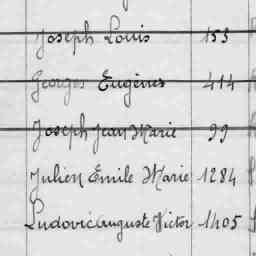 Joseph Louis 153
Georges Eugènes 414
Joseph Jean Marie 99
Julien Emile Marie 1284
Ludovic Auguste Victor 1405